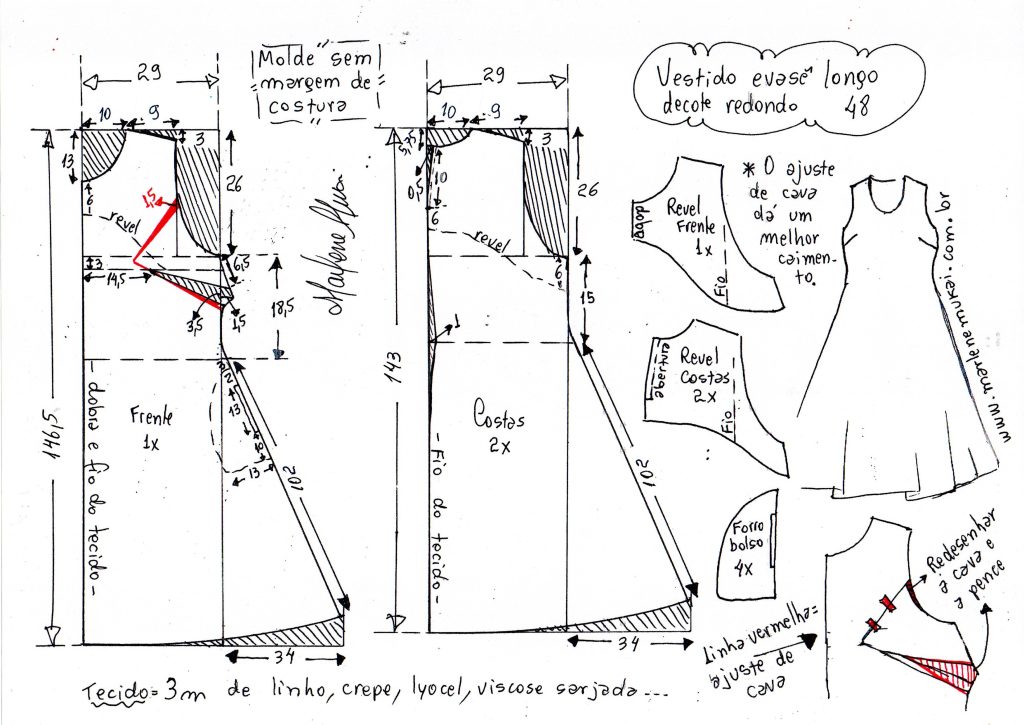 Molde sem
margem de
costura
29
10
9
3
13
6
1,5
26
revel
3
14,5
6,5
3,5
1,5
18,5
146,5
- dobra e fio do tecido -
Frente
1x
2
13
13
102
34
29
10
9
3
5,75
0,5
10
6
26
revel
6
15
1
143
Costas
2x
- Fio do tecido -
102
34
Vestido evasê longo
decote redondo 48
dobra
Revel
Frente
1x
Fio
* O ajuste
de cava
dá um
melhor
caimen-
to.
www.marlenemukai.com.br
abertura
Revel
Costas
2x
Fio
Forro
bolso
4x
Redesenhar
a cava e
a pence
Linha vermelha=
ajuste de
cava
Tecido= 3m de linho, crepe, lyocel, viscose sarjada...